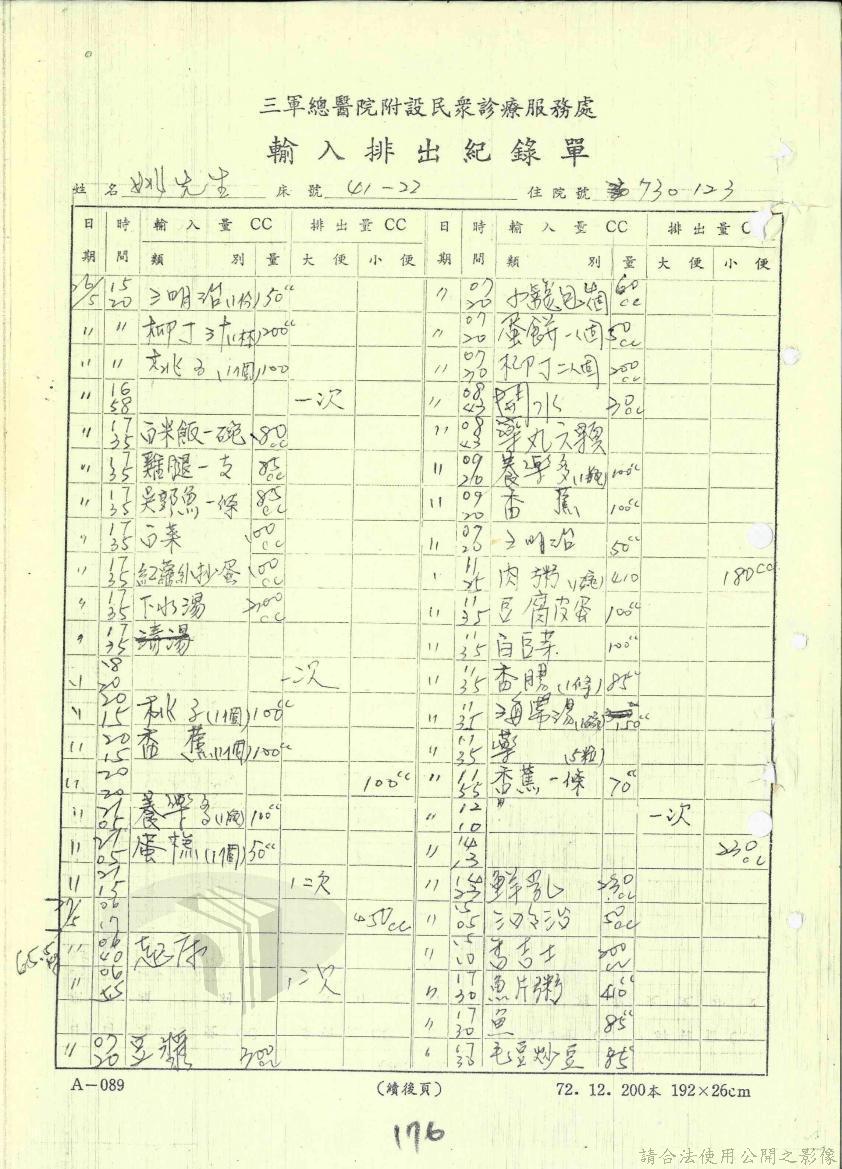 三軍總醫院附設民眾診療服務處
輸入排出紀錄單
姓名 姚先生 床號 41-22 住院號 730-123
日期 時間 輸入量CC 排出量CC 日期 時間 輸入量CC 排出量C
類別 量 大便 小便 類別 量 大便 小便
26/5 15 20 三明治(1份) 50cc
〃 〃 柳丁汁(1杯) 200cc
〃 〃 桃子(1個) 100
〃 16 58 一次
〃 17 35 白米飯一碗 180cc
〃 17 35 雞腿一支 85cc
〃 17 35 吳郭魚一條 85cc
〃 17 35 白菜 100cc
〃 17 35 紅蘿蔔炒蛋 100cc
〃 17 35 下水湯 200cc
〃 17 35 清湯
〃 18 20 一次
〃 20 15 桃子(1個) 100cc
〃 20 15 香蕉(1個) 100cc
〃 20 20 100cc
〃 21 05 養樂多(1瓶) 100cc
〃 21 05 蛋糕(1個) 50cc
〃 21 15 1次
27/5 06 17 450cc
65.5 〃 06 40 起床
〃 06 45 1次
〃 07 20 豆漿 300cc
〃 07 20 小籠包2個 60cc
〃 07 20 蛋餅一個 50cc
〃 07 20 柳丁二個 200cc
〃 08 43 開水 30cc
〃 08 43 藥丸六顆
〃 09 20 養樂多(1瓶) 100cc
〃 09 20 香蕉 100cc
〃 09 20 三明治 50cc
〃 11 25 肉粥(1碗) 410 180cc
〃 11 35 豆腐皮蛋 100cc
〃 11 35 白豆菜 100cc
〃 11 35 香腸(1條) 85cc
〃 11 35 海帶湯(1碗) 150cc
〃 11 35 藥(5粒)
〃 11 55 香蕉一條 70cc
〃 12 10 一次
〃 14 13 230cc
〃 14 23 鮮乳 230cc
〃 15 05 三明治 50cc
〃 15 10 香吉士 200cc
〃 17 30 魚片粥 410cc
〃 17 30 魚 85cc
〃 17 30 毛豆炒豆 85cc
A-089 (續後頁) 72. 12. 200本 192×26cm
176
請合法使用公開之影像